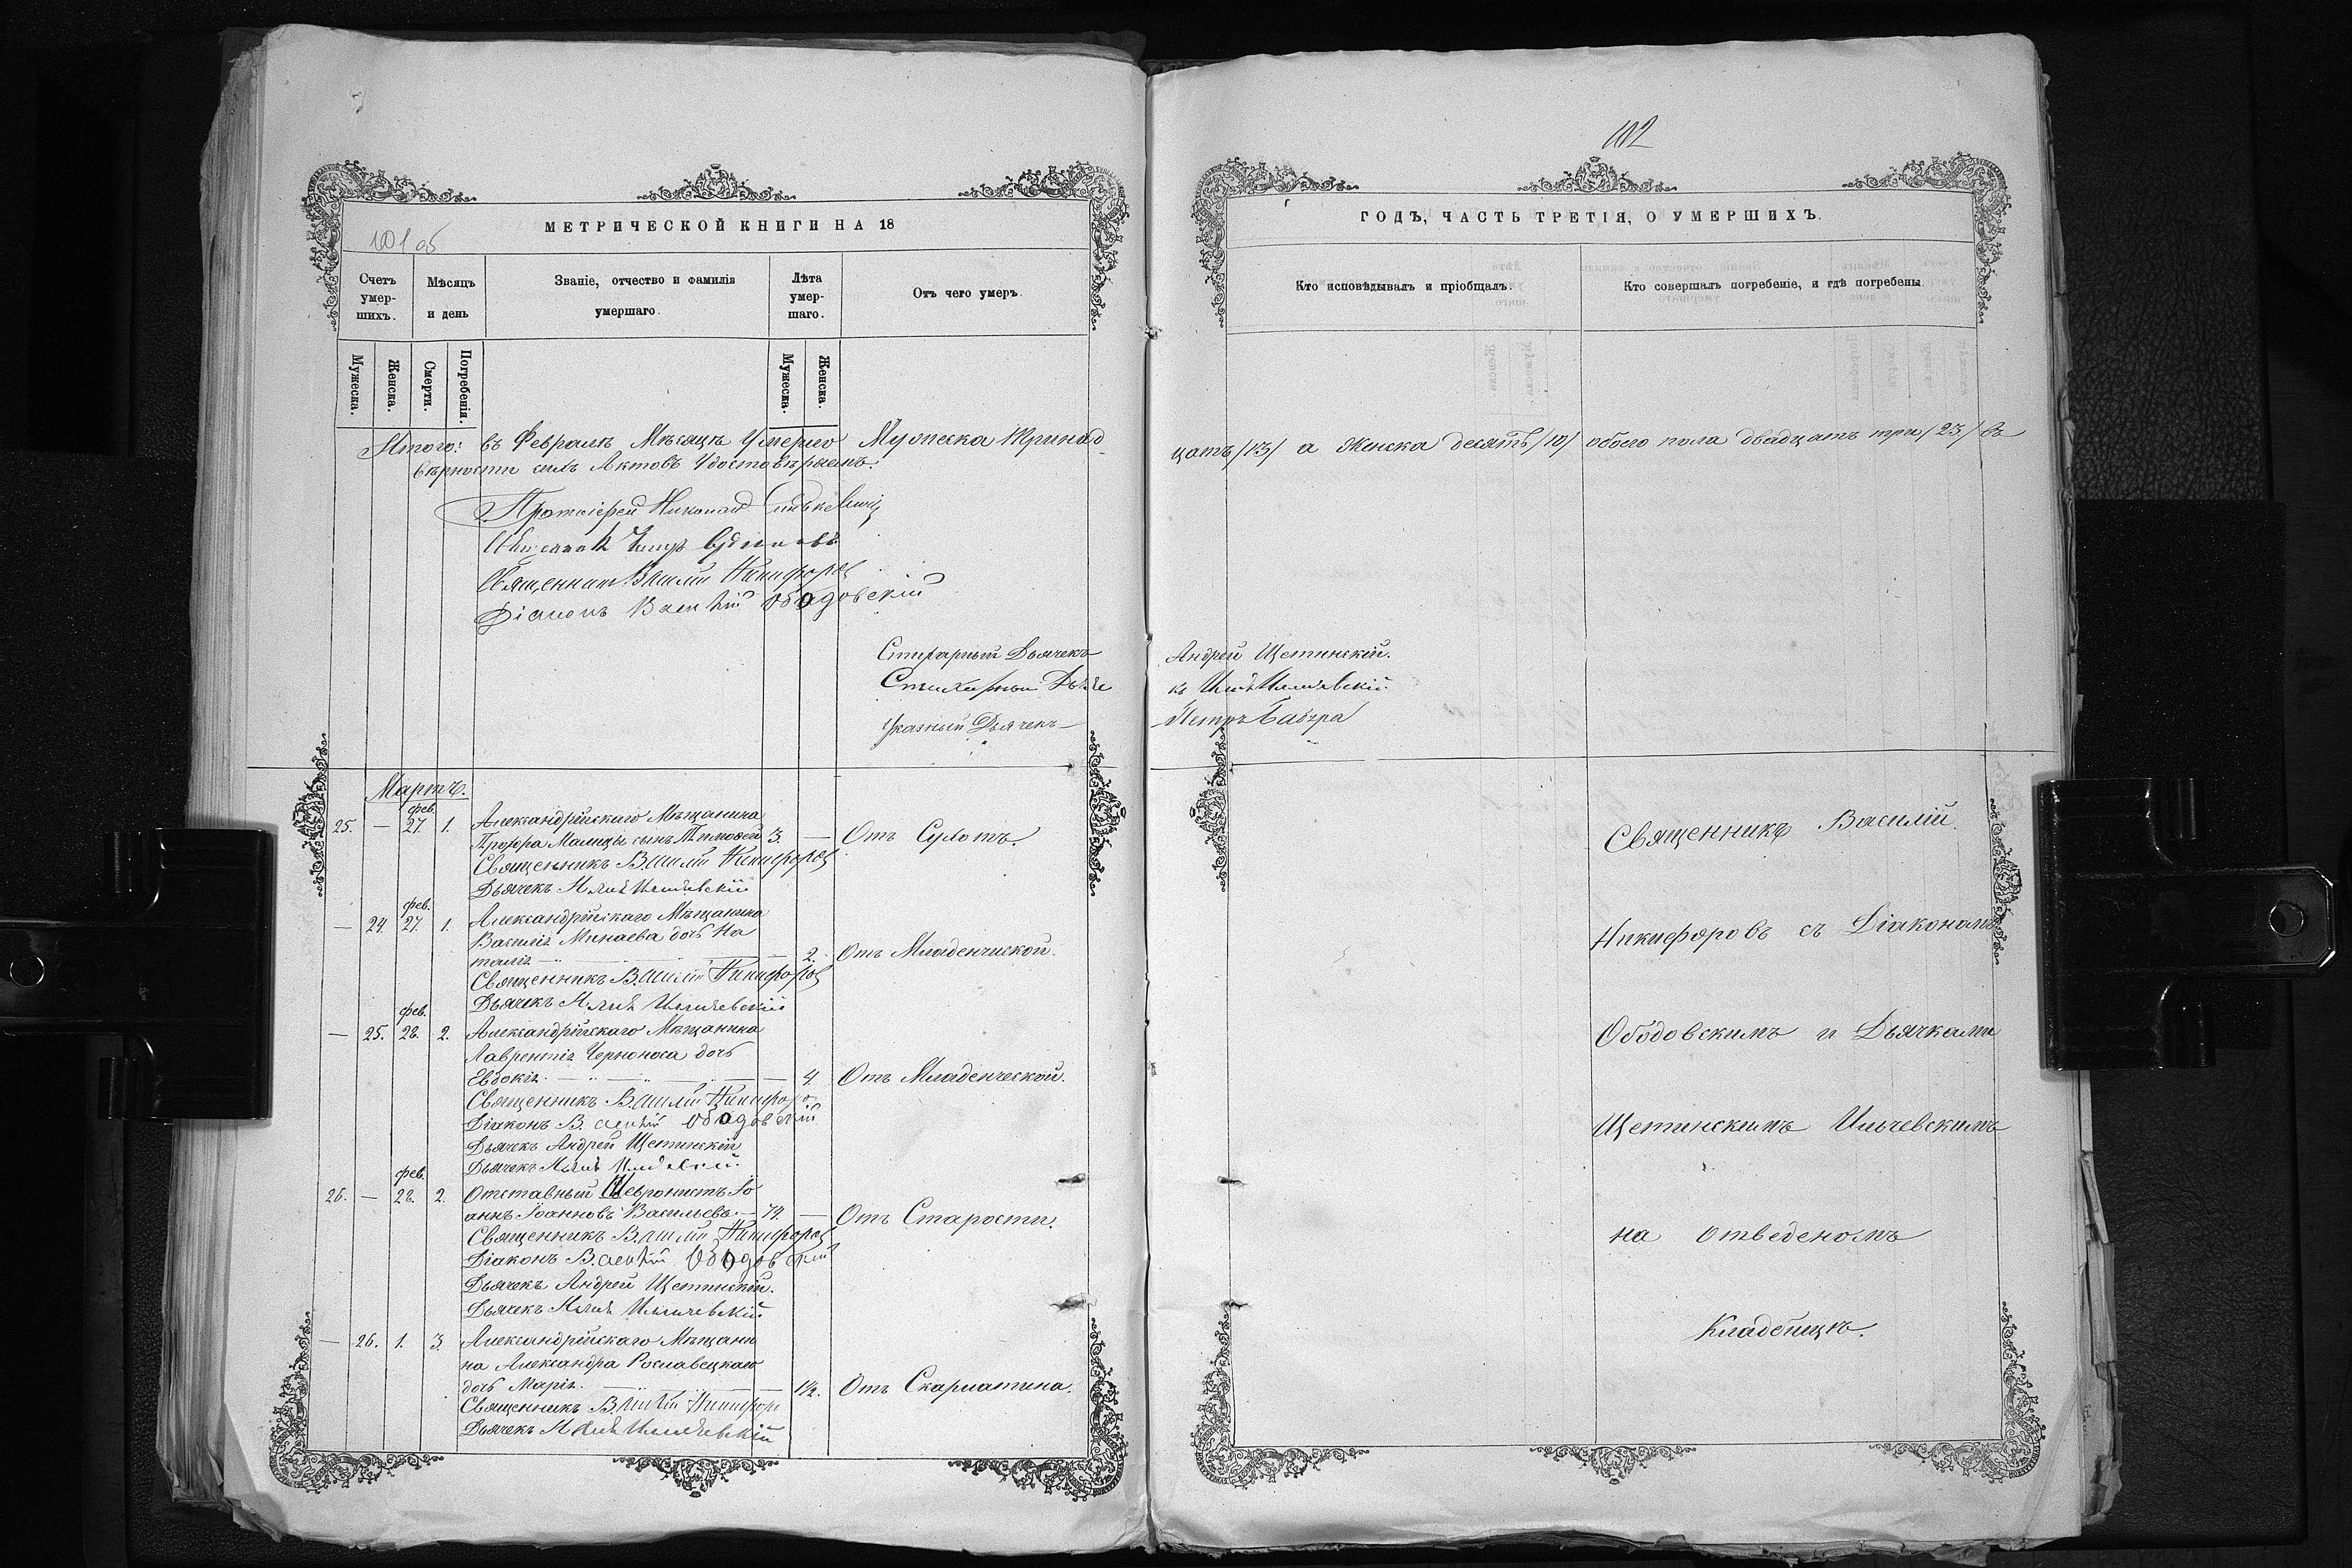 МЕТРИЧЕСКОЙ КНИГИ НА 18
101 об
Счетъ умер-
шихъ.
Мѣсяцъ
и день
Званіе, отчество и фамилія
умершаго.
Лѣта
умер-
шаго.
Отъ чего умеръ.
Мужеска.
Женска.
Смерти.
Погребенія.
Мужеска.
Женска.
Итого: въ Февралѣ Мѣсяцѣ Умерло Мужеска тринад
вѣрности сихъ Актовъ Удостовѣряемъ:
Протоіерей Николай
Священникъ Василій Никифоровъ
Діаконъ Василій Ободовскій
Стихарный Дьячекъ
Стихарный Дьяче
Указный Дьячекъ
Мартъ.
фев.
25. — 27. 1. Александрійскаго Мѣщанина
Малицы сынъ Тимофей 3. — Отъ Сухотъ.
Священникъ Василій Никифоровъ
Дьячекъ Илія Ильчевскій
фев.
— 24. 27. 1. Александрійскаго Мѣщанина
Василія Минаева дочь На
талія — 2. Отъ Младенческой.
Священникъ Василій Никифоровъ
Дьячекъ Илія Ильчевскій
фев.
— 25. 28. 2. Александрійскаго Мѣщанина
Лаврентія Черноноса дочь
Евдокія. — 4. Отъ Младенческой.
Священникъ Василій Никифоро
Діаконъ Василій Ободовскій
Дьячекъ Андрей Щетинскій
Дьячекъ Илія Ильчевскій
фев.
26. — 28. 2. Отставный Шевронистъ Іо
аннъ Іоанновъ Васильевъ. — 74. — Отъ Старости.
Священникъ Василій Никифоровъ
Діаконъ Василій Ободовскій
Дьячекъ Андрей Щетинскій.
Дьячекъ Илія Ильчевскій
— 26. 1. 3. Александрійскаго Мѣщани
на Александра Рославецкаго
дочь Марія. — 1½. Отъ Скарлатина.
Священникъ Василій Никифор
Дьячекъ Илія Ильчевскій
102
ГОДЪ, ЧАСТЬ ТРЕТІЯ, О УМЕРШИХЪ.
Кто исповѣдывалъ и пріобщалъ.
Кто совершалъ погребеніе, и гдѣ погребены.
цать /13/ а Женска десять /10/ обоего пола двадцать три /23/ въ
Андрей Щетинскій.
къ Илія Ильчевскій
Петръ
Священникъ Василій
Никифоровъ съ Діакономъ
Ободовскимъ и Дьячками
Щетинскимъ Ильчевскимъ
на отведеномъ
Кладбищѣ.